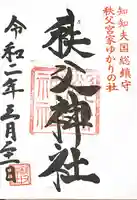 知知夫国総鎮守
秩父宮家ゆかりの社
秩父神社
令和 年 月 日